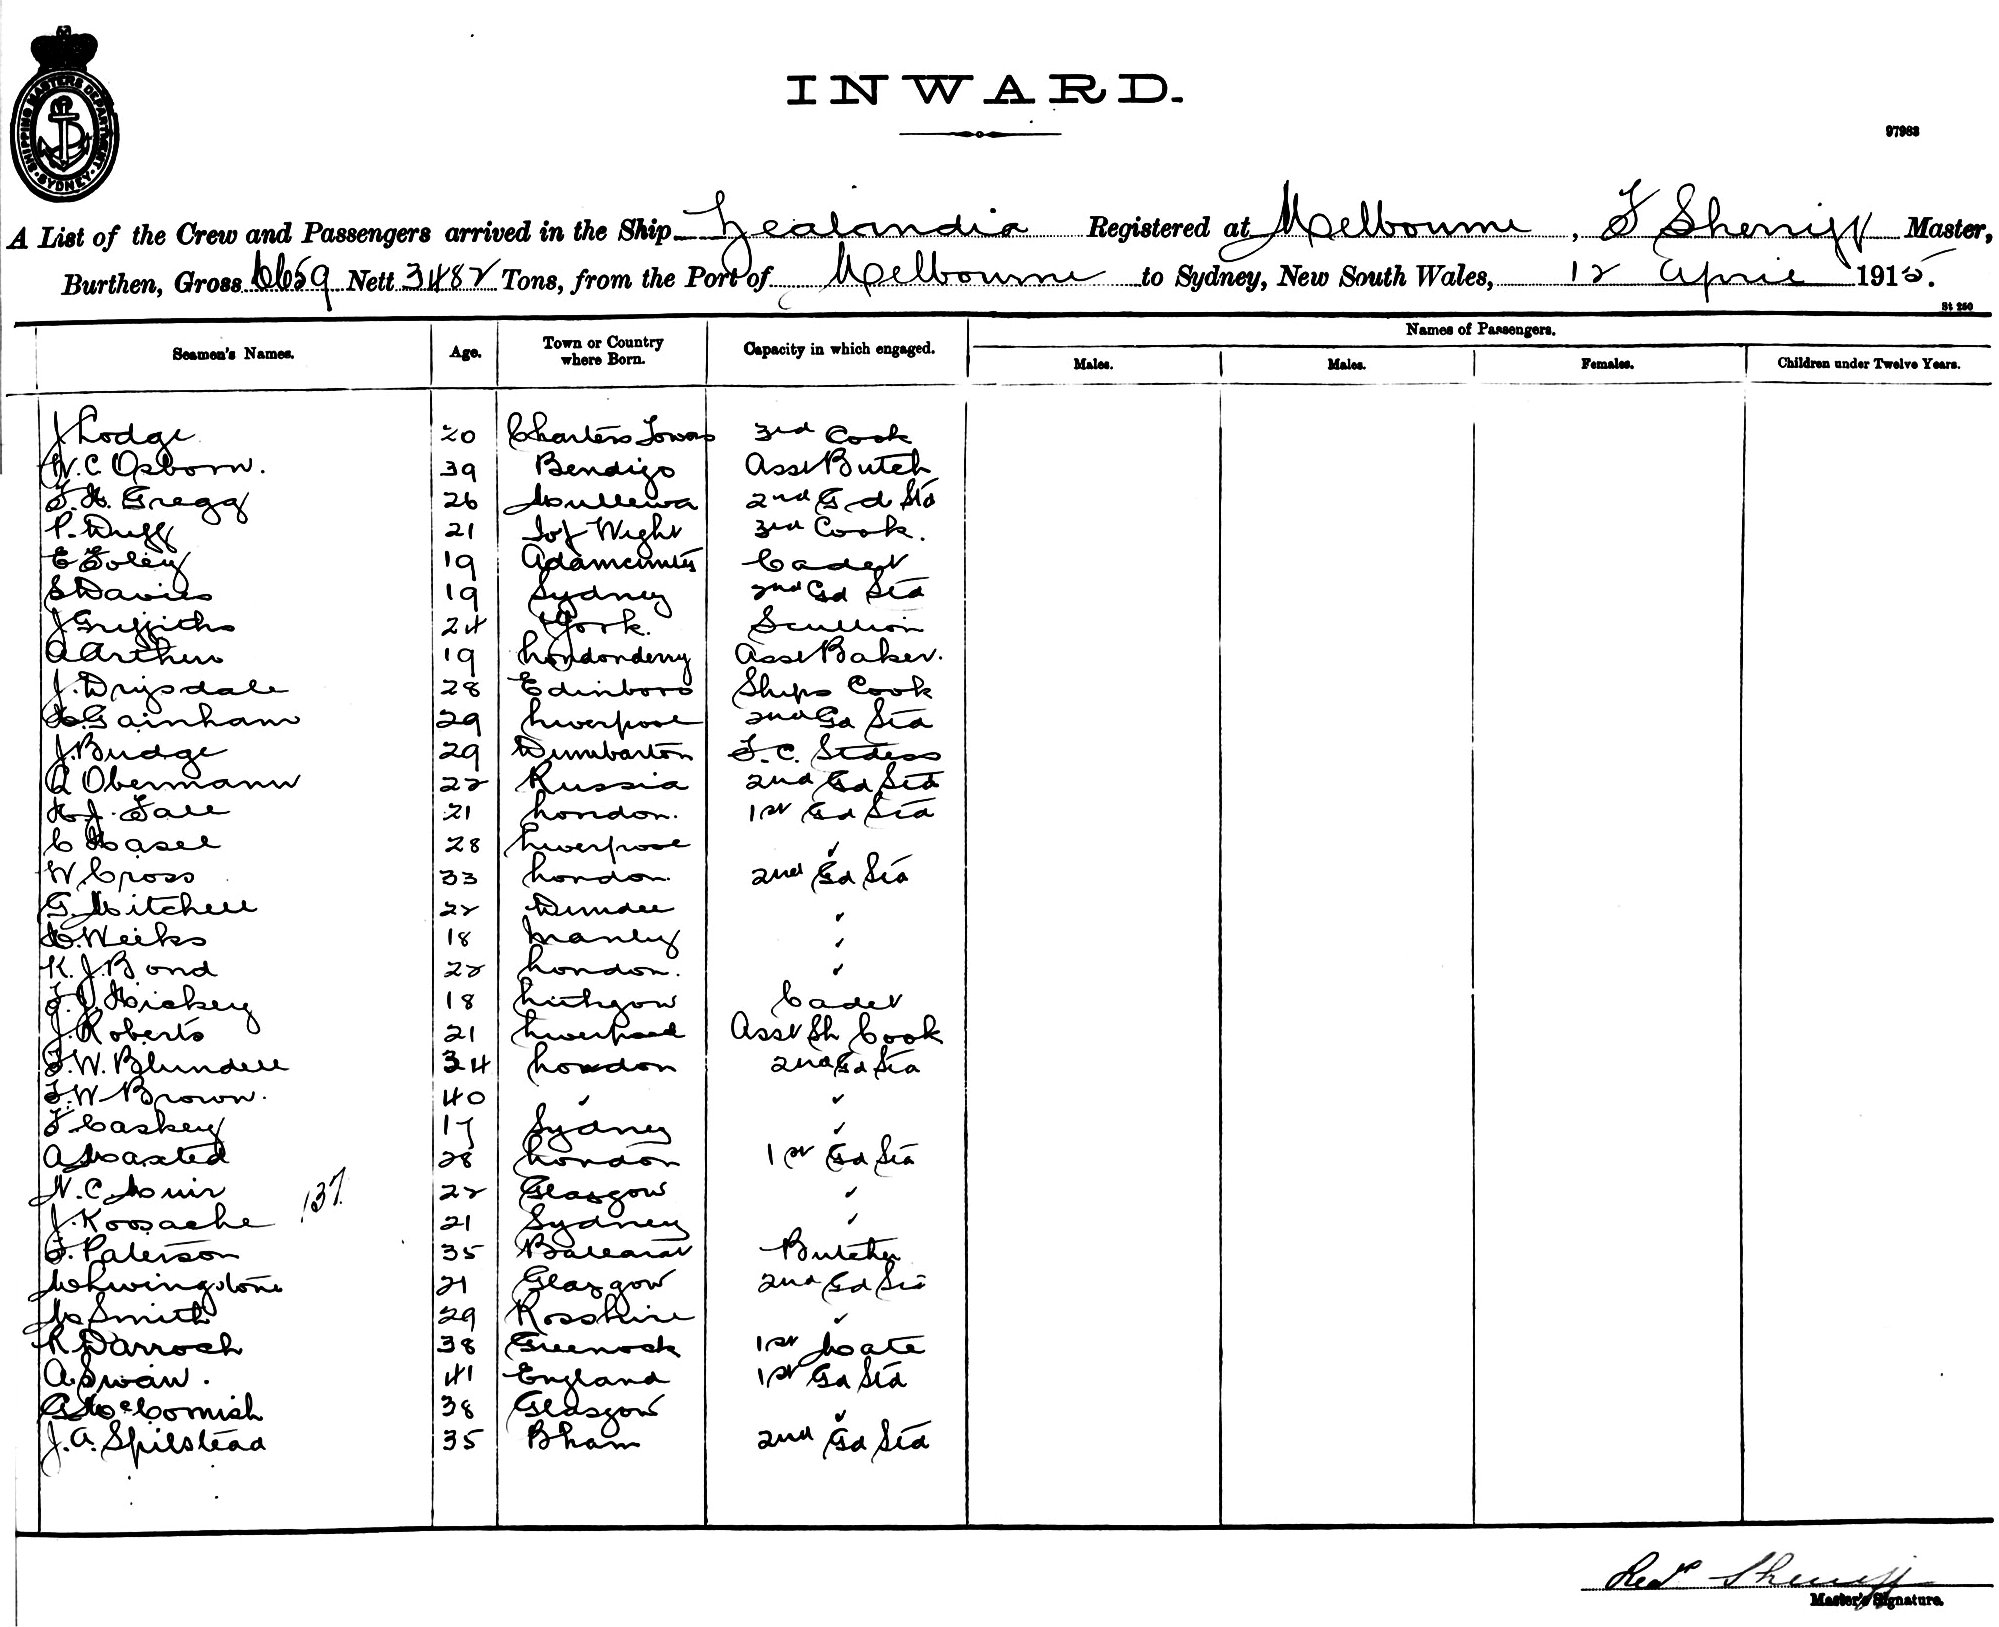 INWARD.
97983
SHIPPING MASTERS DEPARTMENT SYDNEY
A List of the Crew and Passengers arrived in the Ship Zealandia Registered at Melbourne, F Sherriff Master,
Burthen, Gross 6659 Nett 3482 Tons, from the Port of Melbourne to Sydney, New South Wales, 12 April 1915.
St 250
Names of Passengers.
Seamen's Names. Age. Town or Country where Born. Capacity in which engaged. Males. Males. Females. Children under Twelve Years.
J Lodge 20 Charters Towers 3rd Cook
W. C. Osborn. 39 Bendigo Asst Butch
F. H. Gregg 26 Mullewa 2nd Gd Std
P. Duff 21 I of Wight 3rd Cook.
E Foley 19 Cadet
S Davies 19 Sydney 2nd Gd Std
J Griffiths 24 York. Scullion
A Arthur 19 Londonderry Asst Baker.
J. Drysdale 28 Edinboro Ships Cook
H. Gainham 29 Liverpool 2nd Gd Std
J. Budge 29 Dumbarton F. C. Stdess
A Obermann 22 Russia 2nd Gd Std
H. J. Fall 21 London. 1st Gd Std
C Hasell 28 Liverpool ✓
W. Cross 33 London. 2nd Gd Std
G. Mitchell 22 Dundee ✓
H. Weeks 18 Manly ✓
K. J. Bond 22 London. ✓
F. J. Hickey 18 Lithgow Cadet
J. Roberts 21 Liverpool Asst Sh Cook
F. W. Blundell 34 London 2nd Gd Std
F. W. Brown. 40 ✓ ✓
F Caskey 17 Sydney ✓
A Maxted 28 London 1st Gd Std
N. C. Muir 22 Glasgow ✓
137
J. 21 Sydney ✓
F. Paterson 35 Ballarat Butcher
M Livingstone 21 Glasgow 2nd Gd Std
M Smith 29 Rosshire ✓
R Darroch 38 Greenock 1st Mate
A. Swan. 41 England 1st Gd Std
McCornish 38 Glasgow ✓
J. A. Spilstead 35 Bham 2nd Gd Std
Sherriff
Master's Signature.